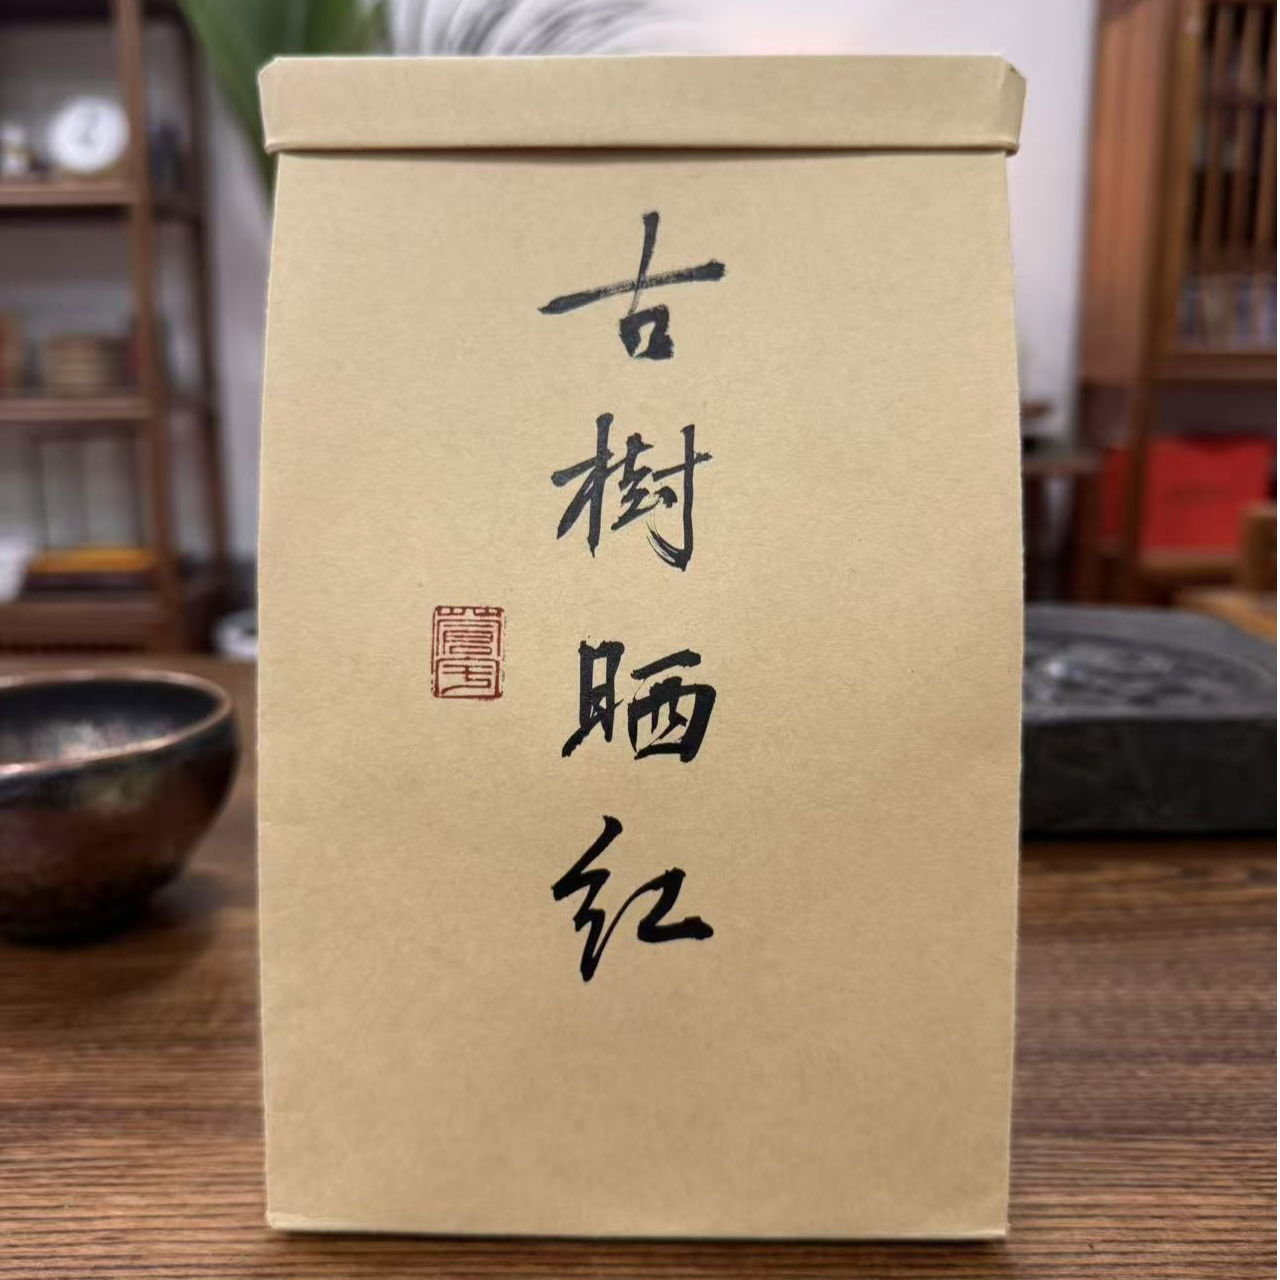 古樹晒红